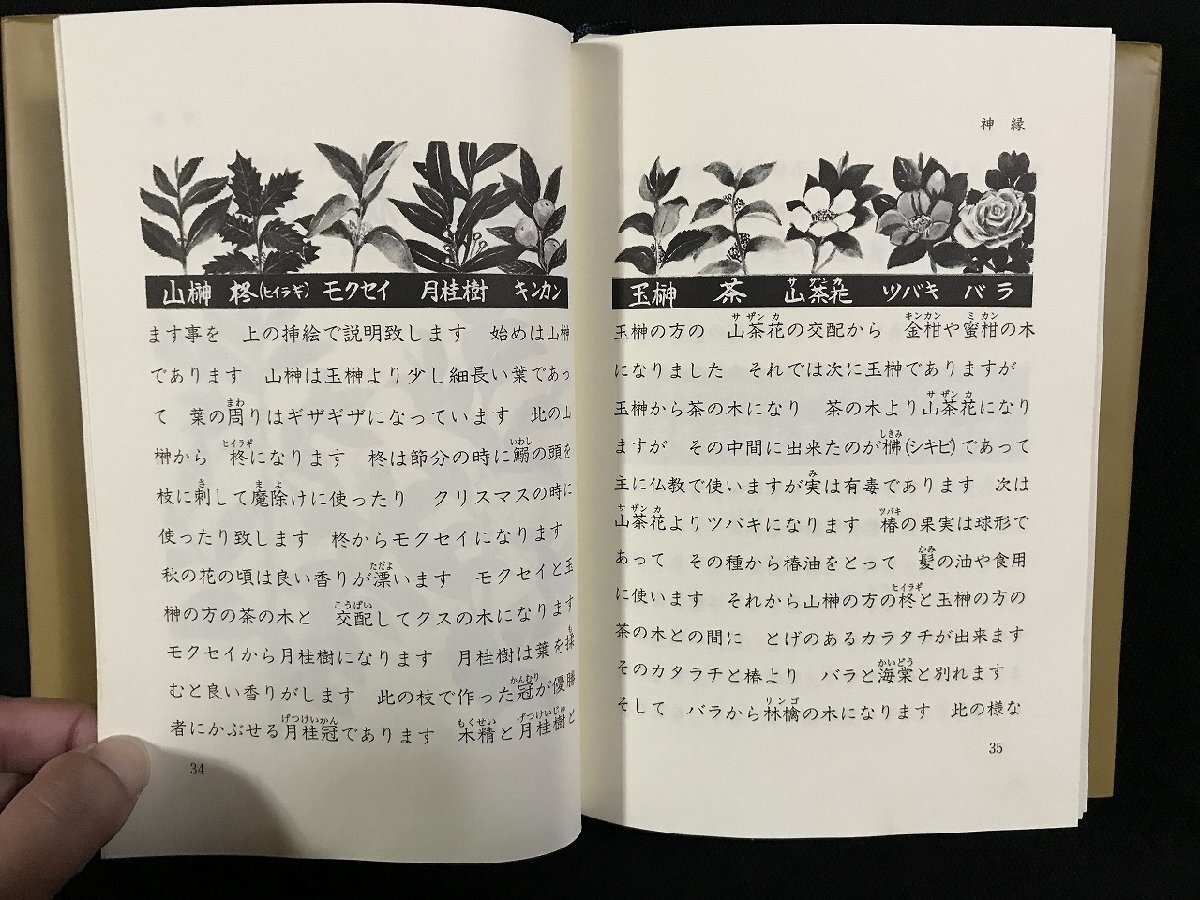 山榊 柊(ヒイラギ) モクセイ 月桂樹 キンカン
ます事を 上の挿絵で説明致します 始めは山榊
であります 山榊は玉榊より少し細長い葉であっ
て 葉の周りはギザギザになっています 此の山
榊から 柊になります 柊は節分の時に鰯の頭を
枝に刺して魔除けに使ったり クリスマスの時に
使ったり致します 柊からモクセイになります
秋の花の頃は良い香りが漂います モクセイと玉
榊の方の茶の木と 交配してクスの木になります
モクセイから月桂樹になります 月桂樹は葉を揉
むと良い香りがします 此の枝で作った冠が優勝
者にかぶせる月桂冠であります 木精と月桂樹と
34
神縁
玉榊 茶 山茶花 ツバキ バラ
玉榊の方の 山茶花の交配から 金柑や蜜柑の木
になりました それでは次に玉榊でありますが
玉榊から茶の木になり 茶の木より山茶花になり
ますが その中間に出来たのが梻(シキビ)であって
主に仏教で使いますが実は有毒であります 次は
山茶花よりツバキになります 椿の果実は球形で
あって その種から椿油をとって 髪の油や食用
に使います それから山榊の方の柊と玉榊の方の
茶の木との間に とげのあるカラタチが出来ます
そのカタラチと椿より バラと海棠と別れます
そして バラから林檎の木になります 此の様な
35